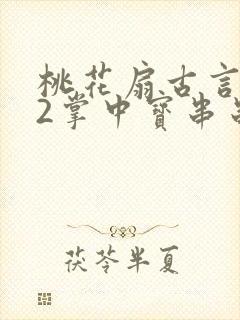 桃花扇古言
2掌中寳串
茯苓半夏